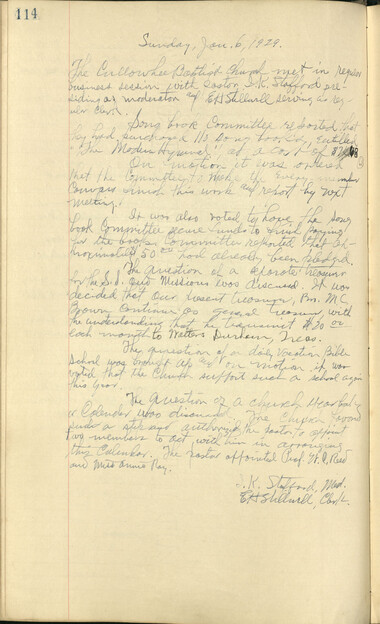 114
Sunday, Jan. 6, 1929.
The Cullowhee Baptist Church met in regular
business session with Pastor I. K. Stafford pre-
siding as moderator & E H Stillwell serving as reg-
ular Clerk.
Song book Committee reported that
had purchased books, Entitled
"The Modern Hymnal" at a cost of
On motion it was ordered
that the Committee to make Every member
Canvass this work and report by next
meeting.
It was also voted to have the song
book Committee secure funds to finish paying
for the books. Committee reported that ap-
proximately 50 had already been pledged.
The question of a separate Treasurer
for the S.S. and Missions was discussed. It was
decided that our present Treasurer, Bro. M.C.
Brown Continue as general Treasurer, with
the understanding that he transmit $20
each month to Walters Durham, Treas.
The question of a daily Vacation Bible
School was brought up and on motion it was
voted that the Church support such a school again
this year.
The question of a Church
or Calendar was discussed. The Church favored
such a step and authorized the Pastor to appoint
two members to act with him in arranging
this Calendar. The Pastor appointed Prof. W. Reed
and Miss Annie Ray.
I. K. Stafford, Mod.
E H Stillwell, Clerk.